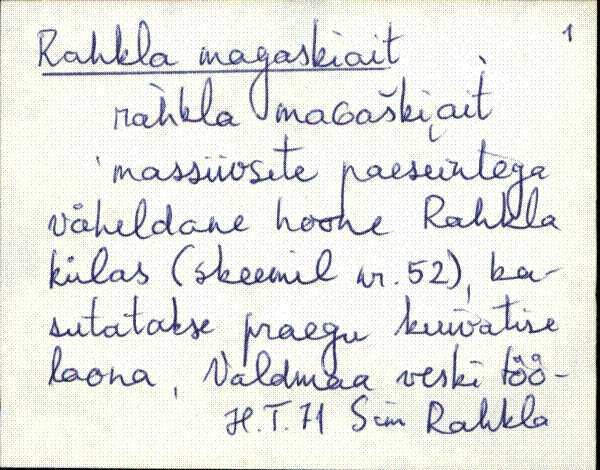 1
Rahkla magaskiait
ràhkla maGaški̮ait̀
massiivsete paeseintega
väheldane hoone Rahkla
külas (skeemil nr. 52), ka-
sutatakse praegu kuivatise
laona, Valdmaa veski töö-
H.T. 71 Sim Rahkla